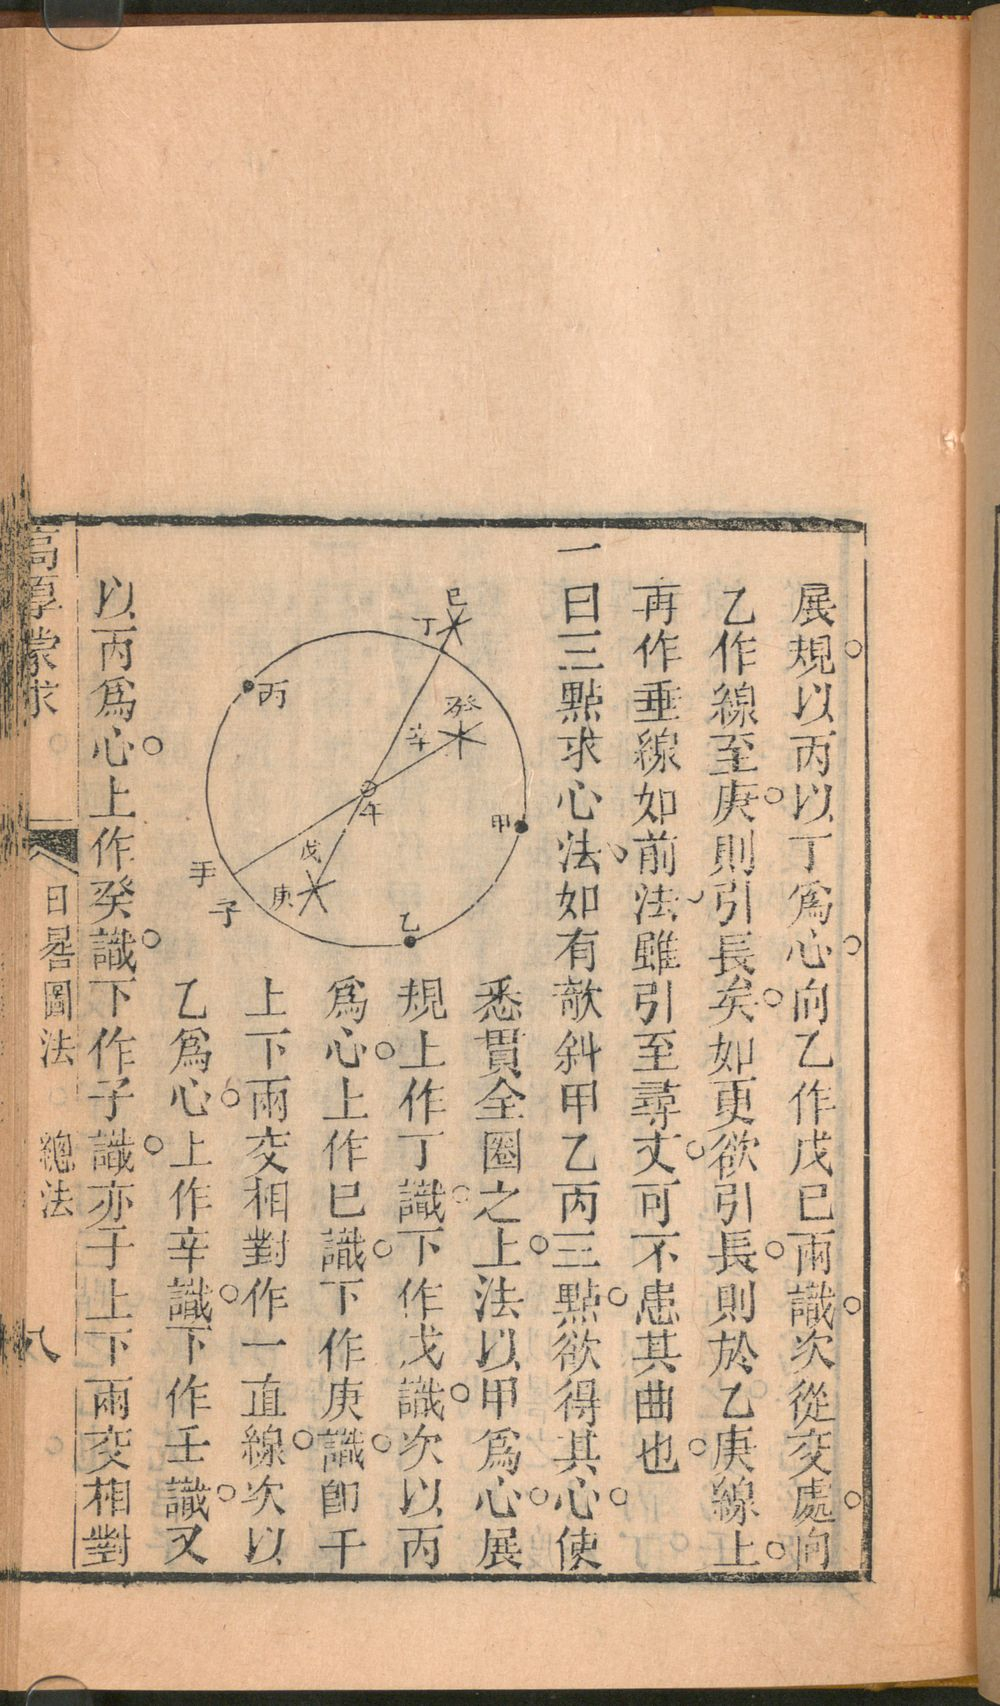 展規以丙以丁爲心向乙作戊已兩識次從交處向
乙作線至庚則引長矣如更欲引長則於乙庚線上
再作垂線如前法雖引至尋丈可不患其曲也
一曰三點求心法如有敵斜甲乙丙三點欲得其心使
悉貫全圈之上法以甲爲心展
規上作丁識下作戊識次以丙
爲心上作已識下作庚識卽于
上下兩交相對作一直線次以
乙爲心上作辛識下作壬識又
以丙爲心上作癸識下作子識亦于上下兩交相對
已
丁
癸
辛
丙
午
甲
戊
庚
子
乙
高厚蒙求
日晷圖法
總法
八